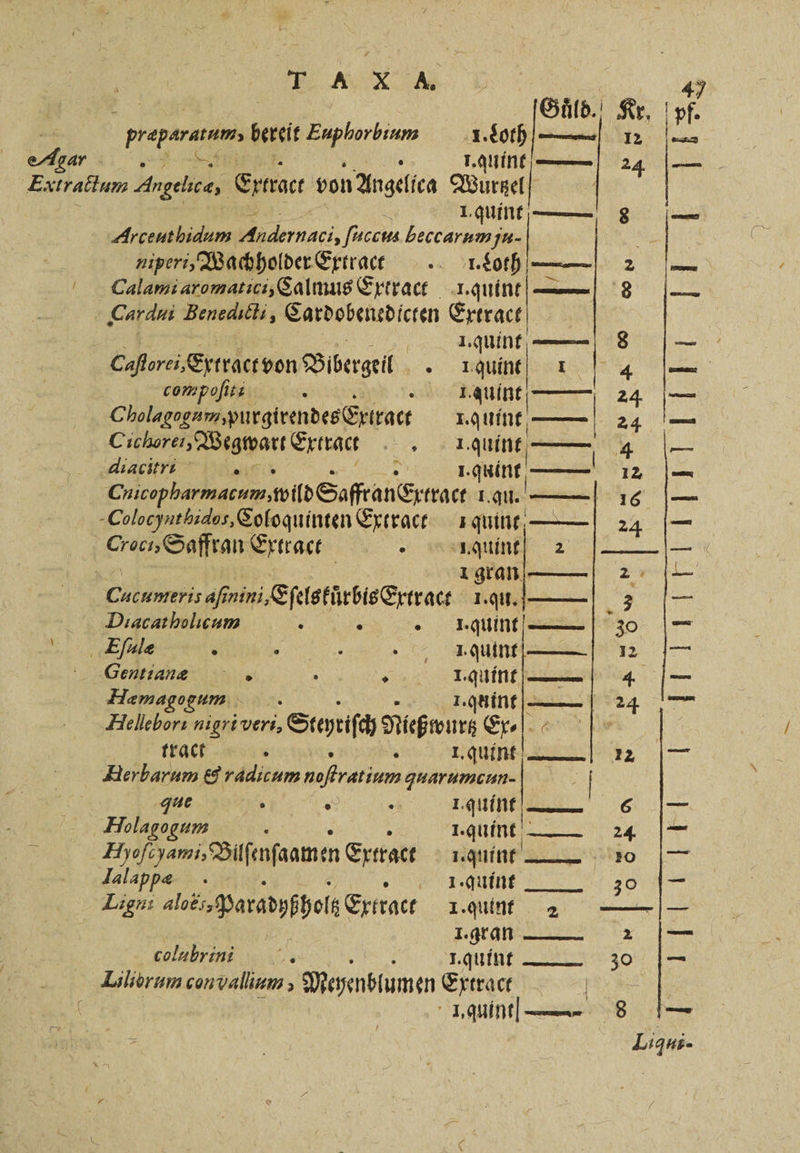 T A X A. 47
Gůld. Kr. pf.
præparatum, bereit Euphorbium 1.Loth —— 12 —
Agar . . . . . 1.quint —— 24 —
Extractum Angelicæ, Extract von Angelica Wurtzel
1.quint —— 8 —
Arceuthidum Andernaci, succus beccarum ju-
niperi, Wachholder Extract . 1.Loth —— 2 —
Calami aromatici, Calmus Extract 1.quint —— 8 —
Cardui Benedicti, Cardobenedicten Extract
1.quint —— 8 —
Castorei, Extract von Bibergeil . 1 quint 1 4 —
compositi . . . 1.quint —— 24 —
Cholagogum, purgirendes Extract 1.quint —— 24 —
Cichorei, Wegwart Extract . 1.quint —— 4 —
diacitri . . . . 1.quint —— 12 —
Cnicopharmacum, wild Saffran Extract 1.qu. —— 16 —
Colocynthidos, Coloquinten Extract 1 quint —— 24 —
Croci, Saffran Extract . 1.quint 2 —— —
1 gran —— 2 —
Cucumeris asinini, Eselskürbis Extract 1.qu. —— 3 —
Diacatholicum . . . 1.quint —— 30 —
Esulæ . . . . 1.quint —— 12 —
Gentianæ . . . 1.quint —— 4 —
Hæmagogum . . . 1.quint —— 24 —
Hellebori nigri veri, Steyrisch Nießwurtz Ex-
tract . . . 1.quint —— 12 —
Herbarum & radicum nostratium quarumcun-
que . . . 1.quint —— 6 —
Holagogum . . . 1.quint —— 24 —
Hyoscyami, Bilsensaamen Extract 1.quint —— 10 —
Ialappæ . . . . 1.quint —— 30 —
Ligni aloës, Paradyßholtz Extract 1.quint 2 —— —
1.gran —— 2 —
colubrini . . . 1.quint —— 30 —
Liliorum convallium, Meyenblumen Extract
1.quint —— 8 —
Liqui-